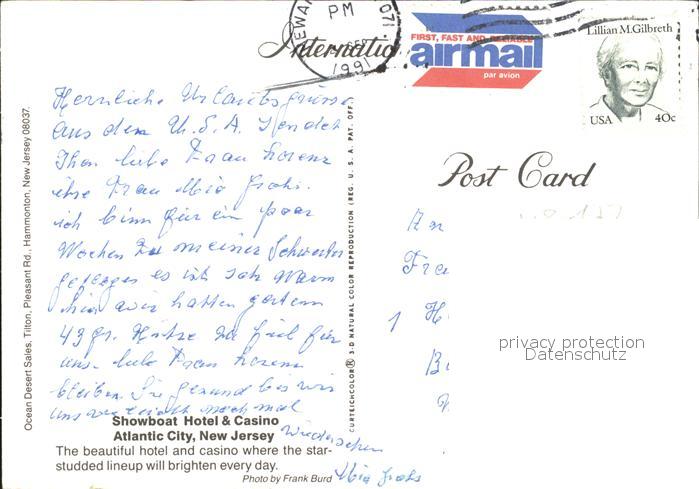 NEWA
PM
071
1991
Internatio
FIRST, FAST AND RELIABLE
airmail
par avion
Lillian M.Gilbreth
USA 40c
Post Card
Herrliche Urlaubsgrüsse
aus dem U.S.A. sendet
Ihnen liebe Frau Lorenz
ihre Frau Mia
ich binn für ein paar
Wochen zu meiner Schwester
geflogen es ist sehr warm
hier wir hatten gestern
43 gr. Hitze zu fiel für
uns. liebe Frau Lorenz
bleiben Sie gesund bis wir
uns vielleicht noch mal
Wiedersehen
Mia
An
Fra
1 H
B
Ocean Desert Sales, Tilton, Pleasant Rd., Hammonton, New Jersey 08037.
CURTEICHCOLOR® 3-D NATURAL COLOR REPRODUCTION (REG. U. S. PAT. OFF.)
Showboat Hotel & Casino
Atlantic City, New Jersey
The beautiful hotel and casino where the star-
studded lineup will brighten every day.
Photo by Frank Burd
privacy protection
Datenschutz